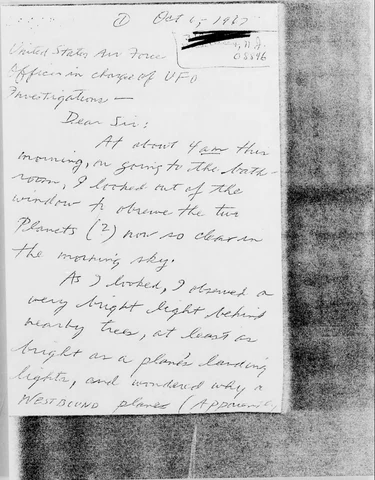 ① Oct 6, 1967
N.J.
08846
United States Air Force
Officer in charge of UFO
Investigations —
Dear Sir:
At about 4 am this
morning, on going to the bath-
room, I looked out of the
window to observe the two
Planets (2) now so clear in
the morning sky.
As I looked, I observed a
very bright light behind
nearby trees, at least as
bright as a plane's landing
lights, and wondered why a
WESTBOUND planes (Apparently